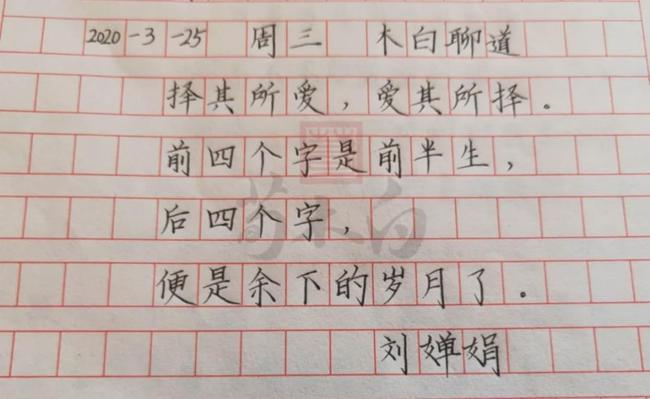 2020-3-25 周三 木白聊道
择其所爱，爱其所择。
前四个字是前半生，
后四个字，
便是余下的岁月了。
刘婵娟